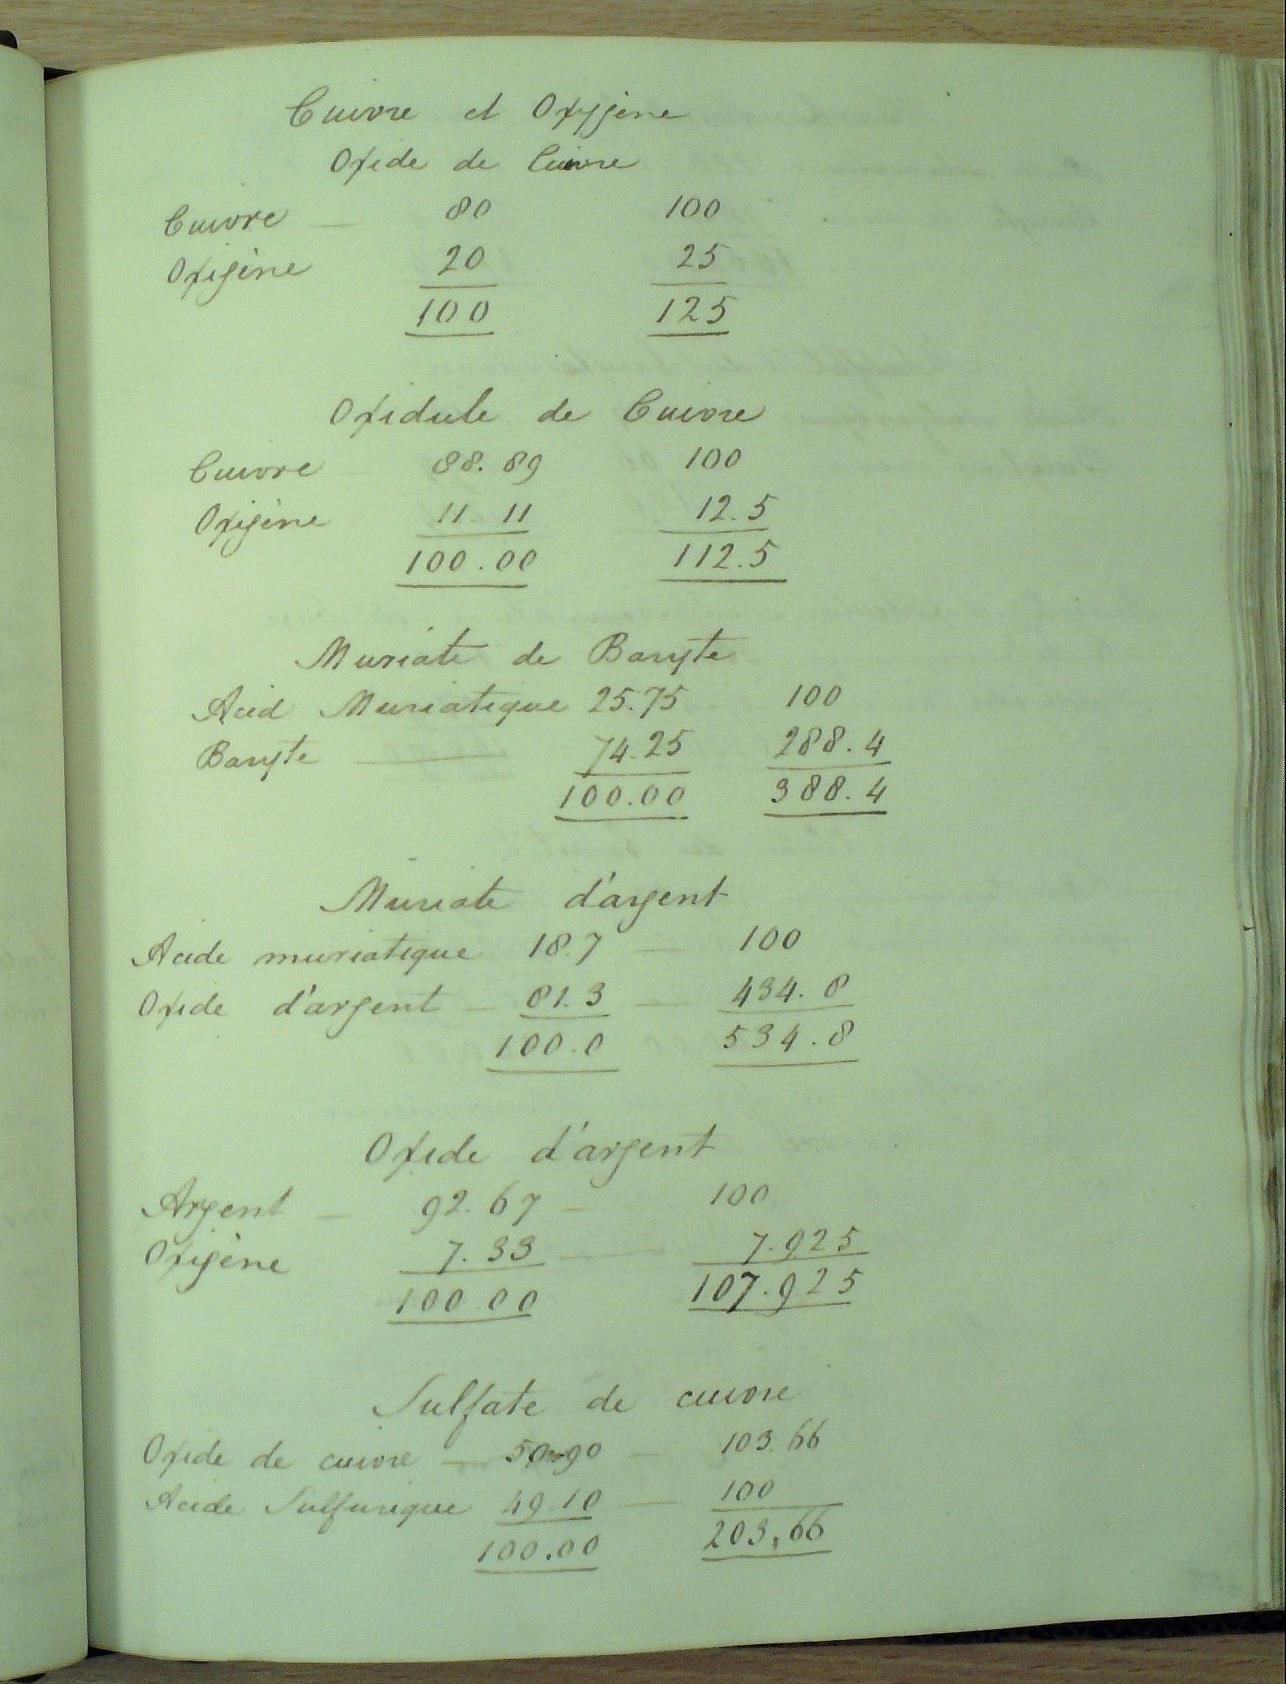 Cuivre et Oxygène
Oxide de Cuivre
Cuivre — 80 100
Oxigène 20 25
100 125
Oxidule de Cuivre
Cuivre — 88.89 100
Oxigène 11.11 12.5
100.00 112.5
Muriate de Baryte
Acid Muriatique 25.75 100
Baryte — 74.25 288.4
100.00 388.4
Muriate d'argent
Acide muriatique 18.7 — 100
Oxide d'argent — 81.3 — 434.8
100.0 534.8
Oxide d'argent
Argent — 92.67 — 100
Oxigène 7.33 — 7.925
100.00 107.925
Sulfate de cuivre
Oxide de cuivre — 50.90 — 103.66
Acide Sulfurique 49.10 — 100
100.00 203,66